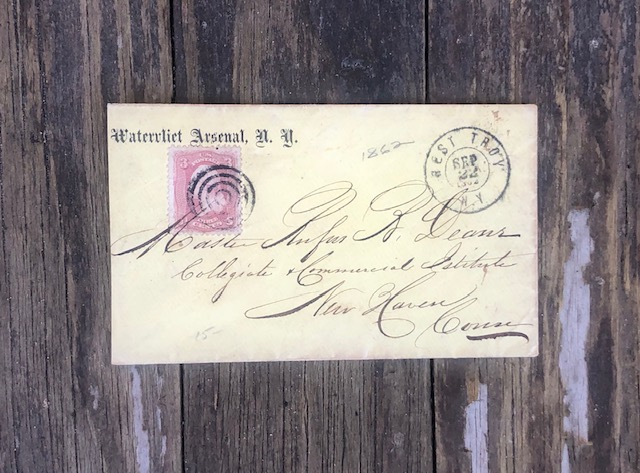 Watervliet Arsenal, N. Y.
1862
WEST TROY
SEP
22
N.Y
Master Rufus B. Deane
Collegiate & Commercial Institute
New Haven
Conn
15